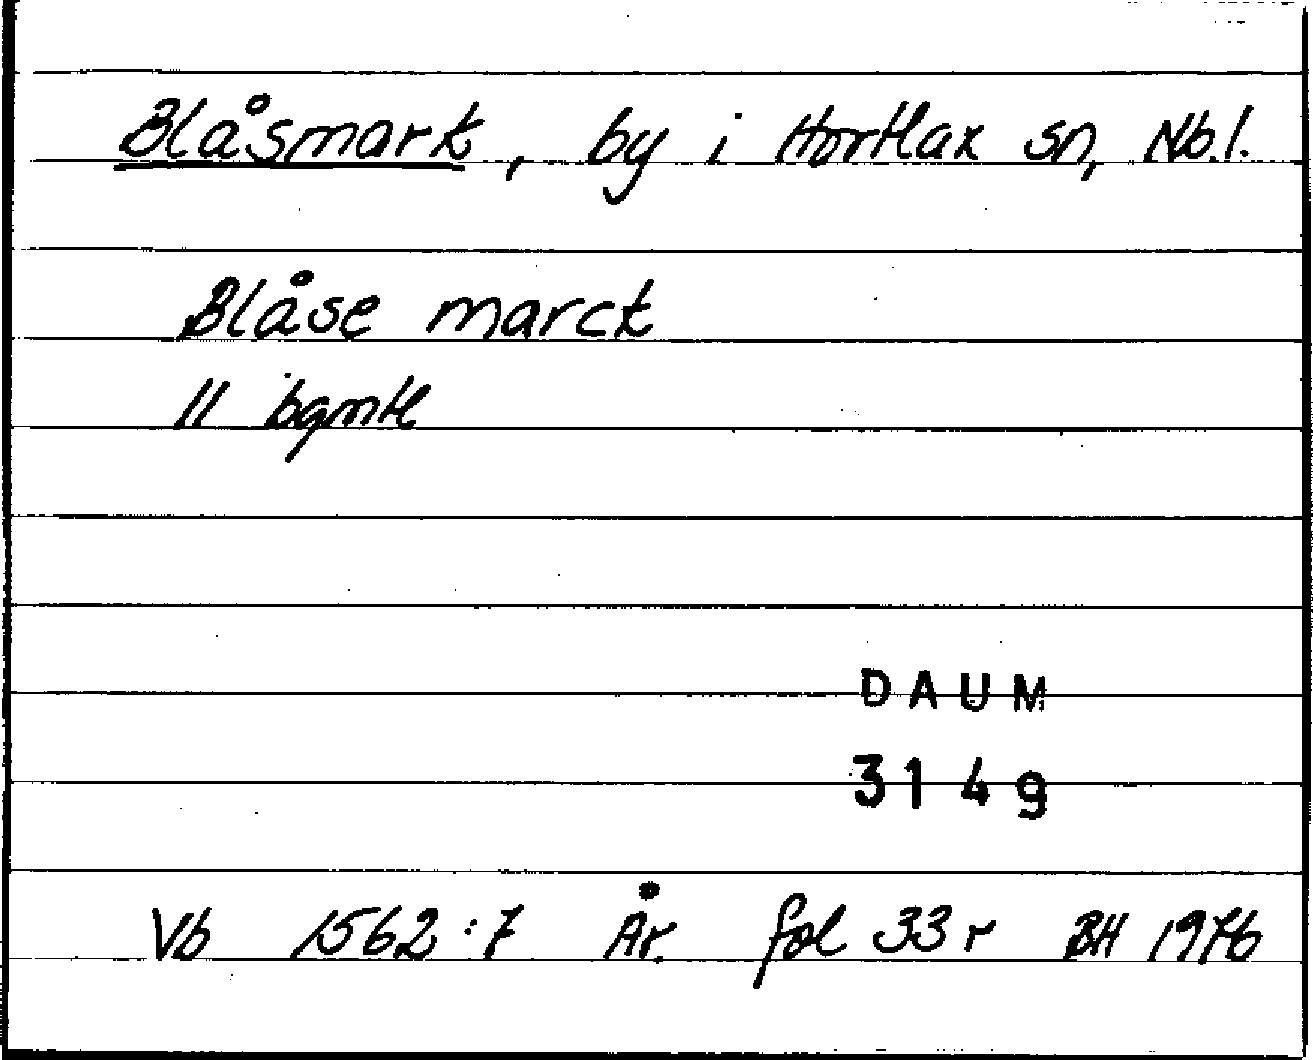 Blåsmark, by i Hortlax sn, Nb.l.
Blåse marck
11 bgmtl
DAUM
3149
Vb 1562:7 År. fol 33 r BH 1976